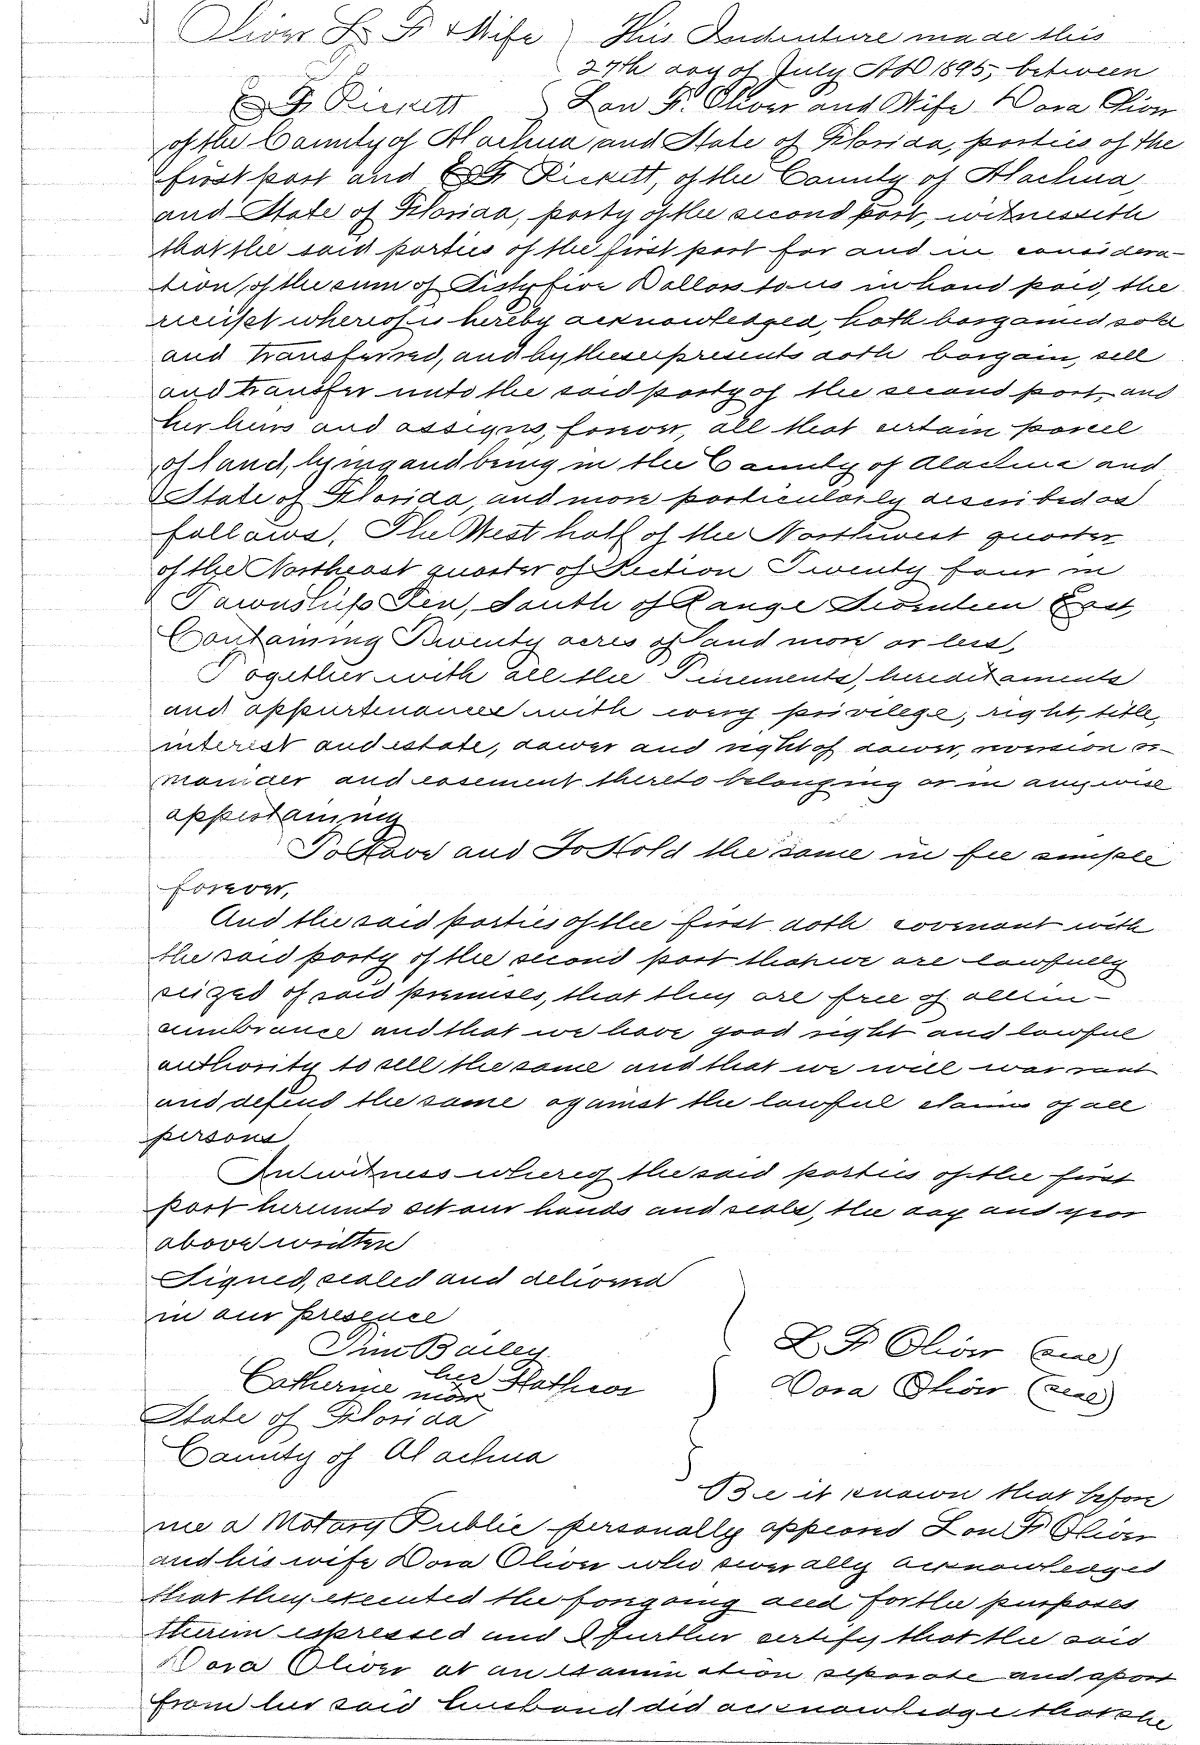 Oliver L F & Wife ) This Indenture made this
27th day of July AD 1895, between
E F Rickett ) Lon F. Oliver and Wife Dora Oliver
of the County of Alachua and State of Florida, parties of the
first part and E F Rickett, of the County of Alachua,
and State of Florida, party of the second part, witnesseth
that the said parties of the first part for and in considera-
tion of the sum of Sixty five Dollars to us in hand paid, the
receipt whereof is hereby acknowledged, hath bargained sold
and transferred, and by these presents doth bargain, sell
and transfer unto the said party of the second part, and
her heirs and assigns, forever, all that certain parcel
of land, lying and being in the County of Alachua and
State of Florida, and more particularly described as
follows, The West half of the Northwest quarter
of the Northeast quarter of Section Twenty four in
Township Ten, South of Range Seventeen East,
Containing Twenty acres of land more or less,
Together with all the Tinements, hereditaments
and appurtenances with every privilege, right, title,
interest and estate, dower and right of dower, reversion re-
mainder and easement thereto belonging or in anywise
appertaining
To Have and To Hold the same in fee simple
forever,
And the said parties of the first doth covenant with
the said party of the second part that we are lawfully
seized of said premises, that they are free of all in-
cumbrance and that we have good right and lawful
authority to sell the same and that we will warrant
and defend the same against the lawful claims of all
persons
In witness whereof the said parties of the first
part hereunto set our hands and seals, the day and year
above written
Signed, sealed and delivered
in our presence
Tim Bailey
L F Oliver (seal)
Catherine her mark Mathews
Dora Oliver (seal)
State of Florida
County of Alachua
Be it known that before
me a Notary Public personally appeared Lon F Oliver
and his wife Dora Oliver who severally acknowledged
that they executed the foregoing deed for the purposes
therein expressed and I further certify that the said
Dora Oliver at an examination separate and apart
from her said husband did acknowledge that she